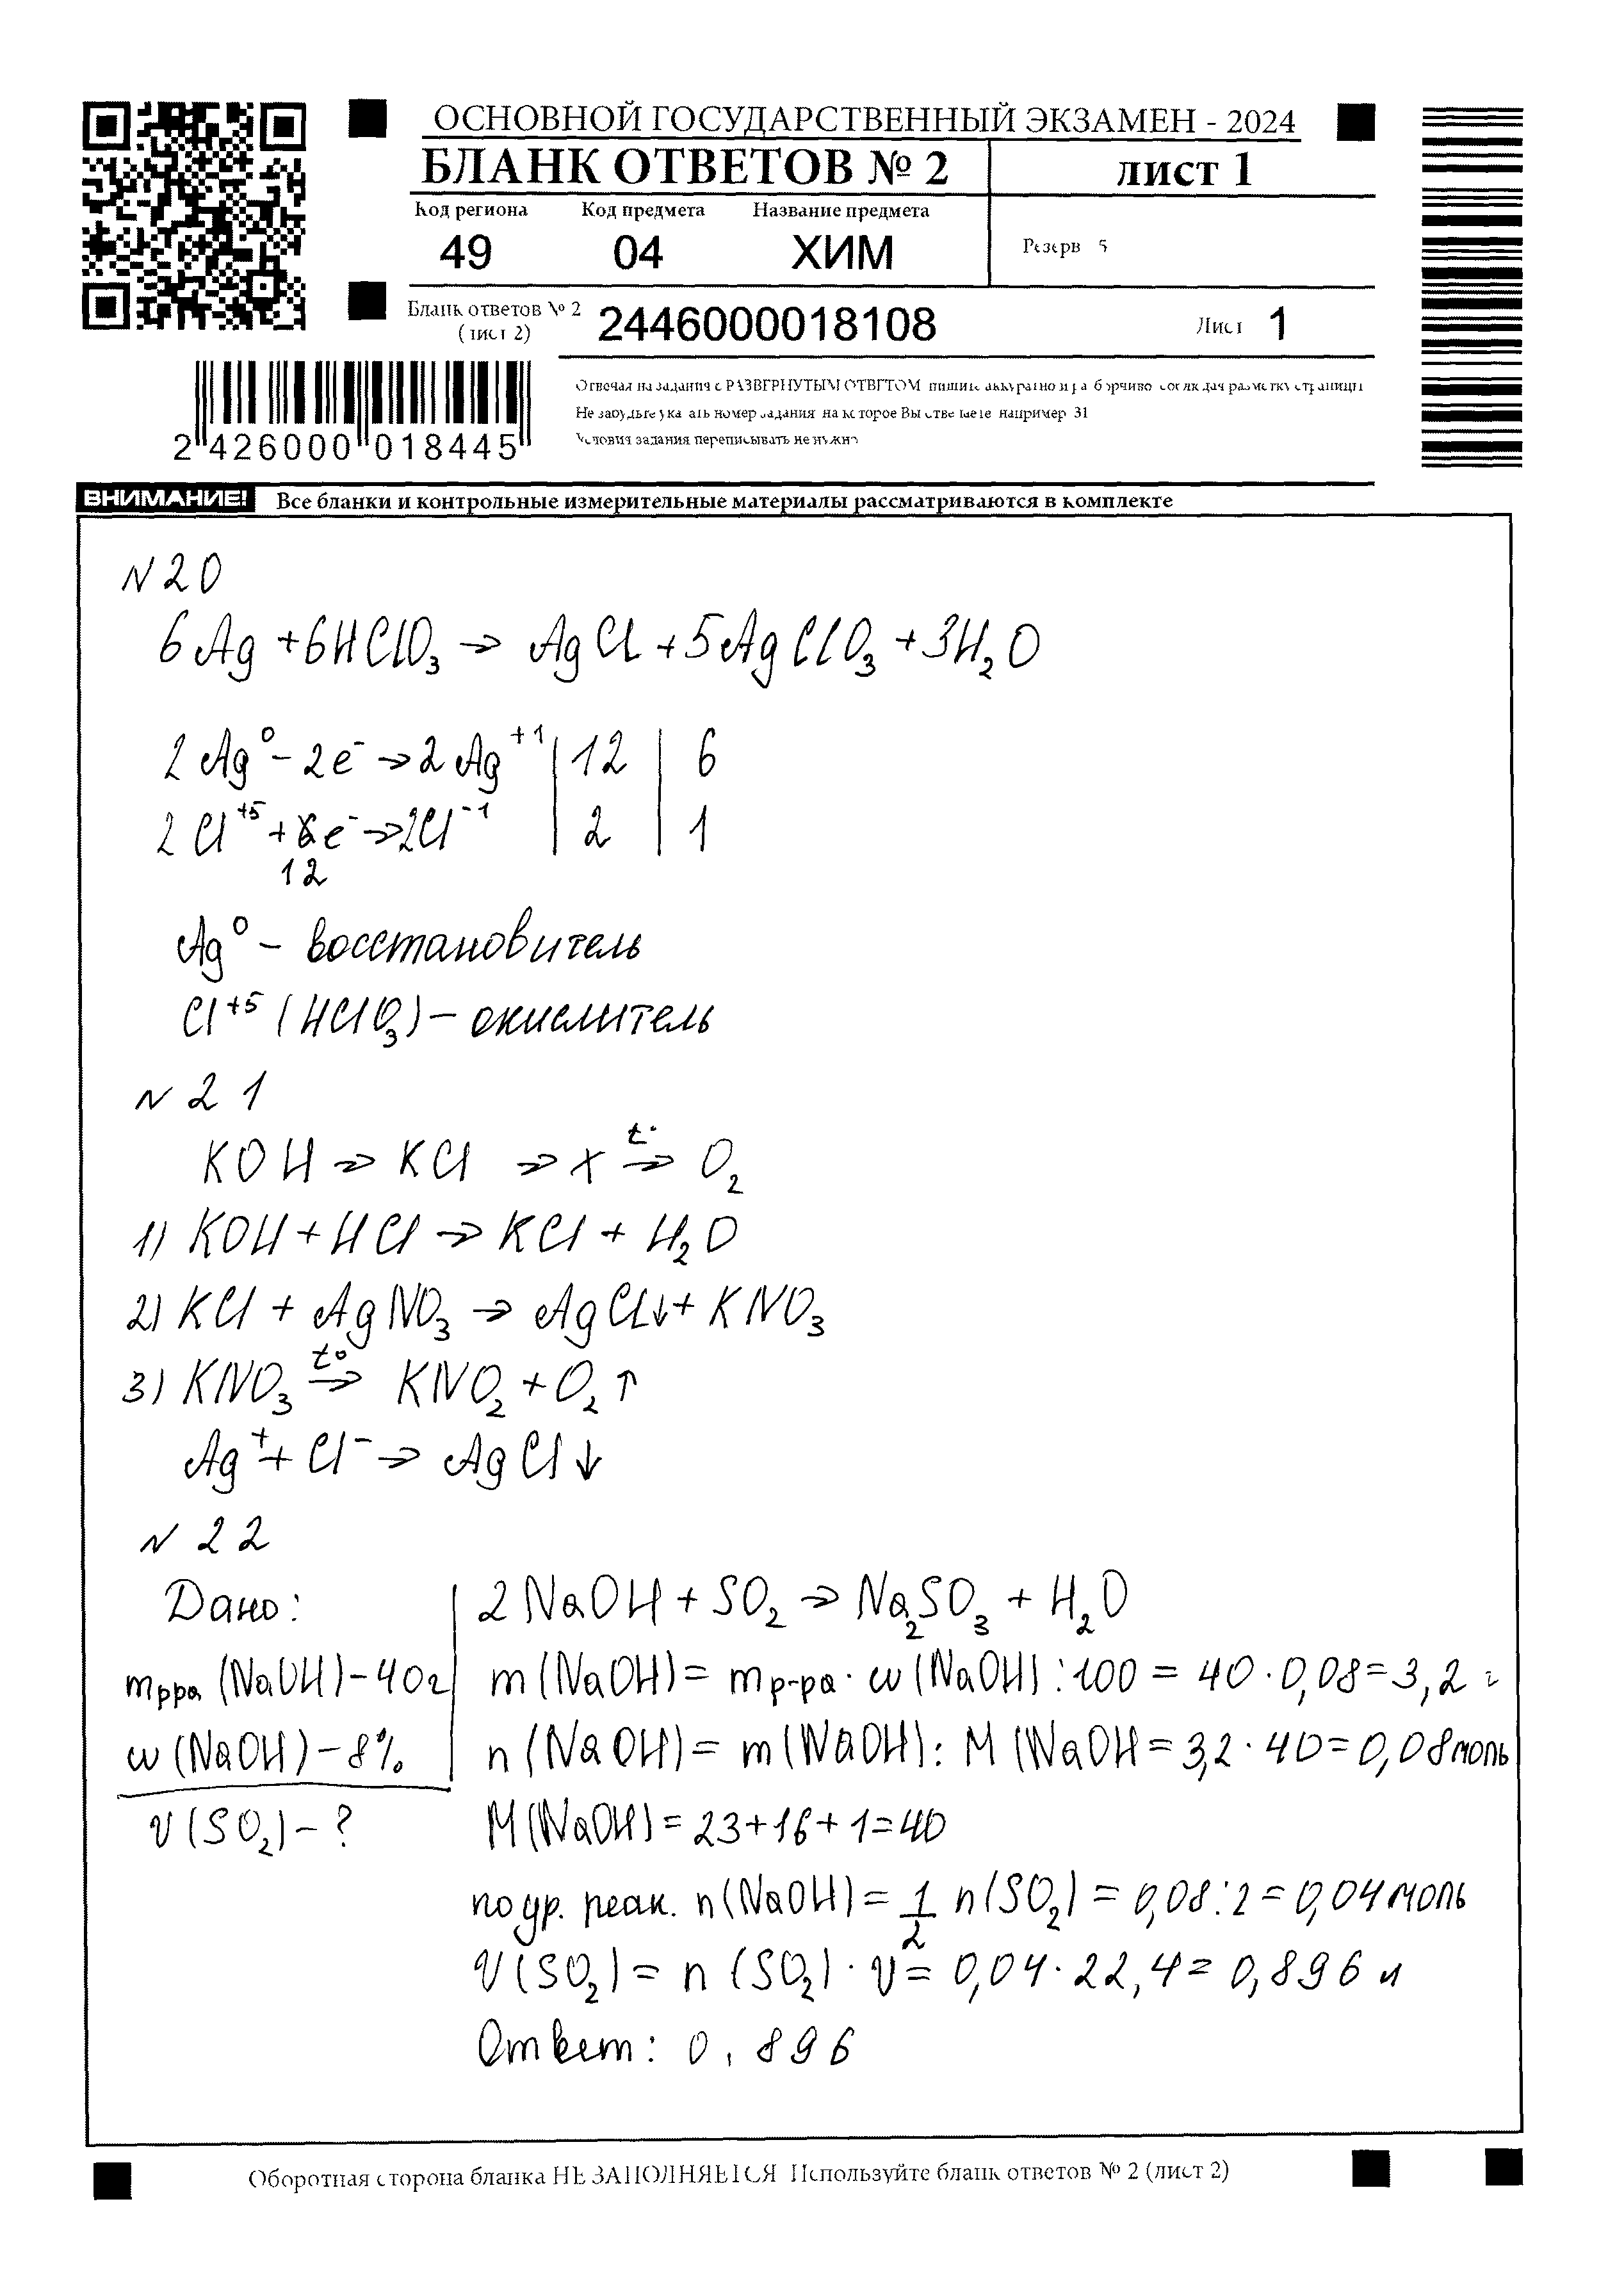 ОСНОВНОЙ ГОСУДАРСТВЕННЫЙ ЭКЗАМЕН - 2024
БЛАНК ОТВЕТОВ № 2
лист 1
Код региона Код предмета Название предмета
49 04 ХИМ
Резерв 5
Бланк ответов № 2
(лист 2)
2446000018108
Лист 1
2 426000 018445
Отвечая на задания с РАЗВЕРНУТЫМ ОТВЕТОМ пишите аккуратно и разборчиво соблюдая разметку страницы
Не забудьте указать номер задания на которое Вы отвечаете например 31
Условия задания переписывать не нужно
ВНИМАНИЕ! Все бланки и контрольные измерительные материалы рассматриваются в комплекте
N 20
6Ag + 6HClO₃ → AgCl + 5AgClO₃ + 3H₂O
2Ag⁰ - 2e⁻ → 2Ag⁺¹ | 12 | 6
2Cl⁺⁵ + e⁻ → 2Cl⁻¹ | 2 | 1
12
Ag⁰ – восстановитель
Cl⁺⁵ (HClO₃) – окислитель
N 21
KOH → KCl → X →t° O₂
1) KOH + HCl → KCl + H₂O
2) KCl + AgNO₃ → AgCl↓ + KNO₃
3) KNO₃ →t° KNO₂ + O₂↑
Ag⁺ + Cl⁻ → AgCl↓
N 22
Дано:
mрра (NaOH) – 40г
w (NaOH) – 8%
V (SO₂) – ?
2NaOH + SO₂ → Na₂SO₃ + H₂O
m (NaOH) = mр-ра · w (NaOH) : 100 = 40 · 0,08 = 3,2 г
n (NaOH) = m (NaOH) : M (NaOH = 3,2 · 40 = 0,08 моль
M (NaOH) = 23+16+1=40
по ур. реак. n (NaOH) = 1/2 n (SO₂) = 0,08 : 2 = 0,04 моль
V (SO₂) = n (SO₂) · V = 0,04 · 22,4 = 0,896 л
Ответ: 0,896
Оборотная сторона бланка НЕ ЗАПОЛНЯЕТСЯ Используйте бланк ответов № 2 (лист 2)